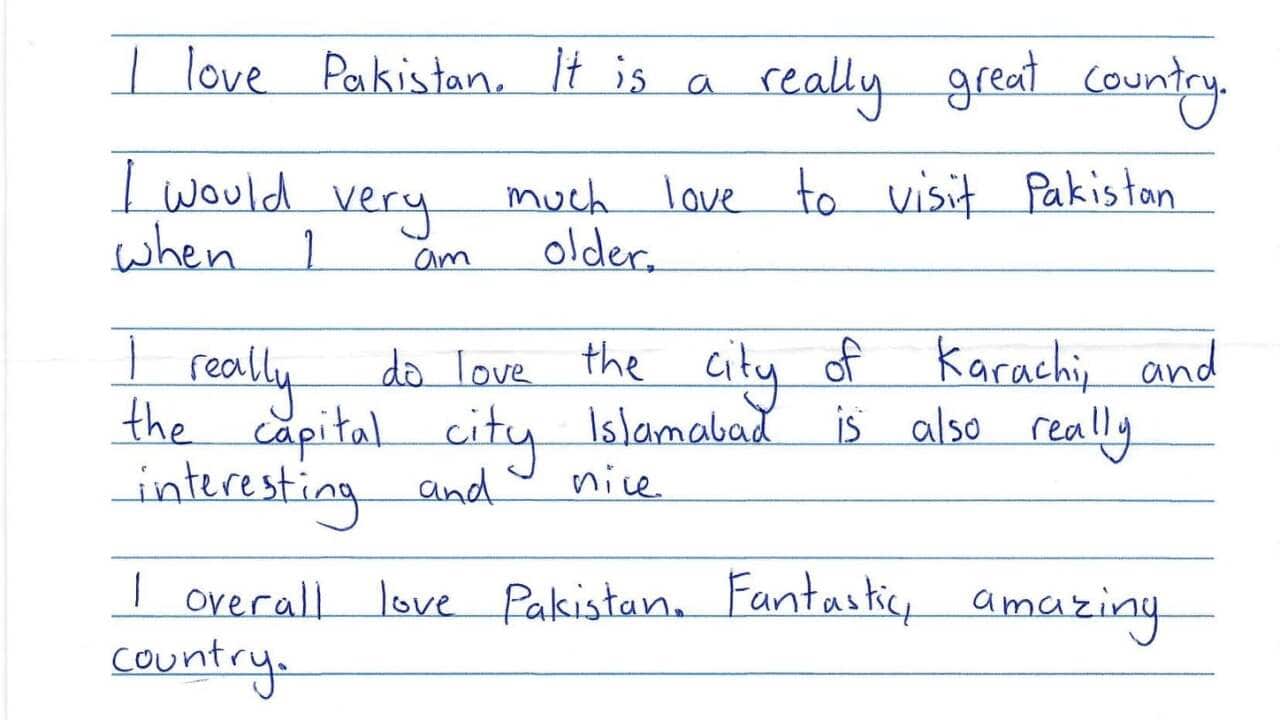 I love Pakistan. It is a really great country.
I would very much love to visit Pakistan
when I am older.
I really do love the city of Karachi, and
the capital city Islamabad is also really
interesting and nice.
I overall love Pakistan. Fantastic, amazing
country.